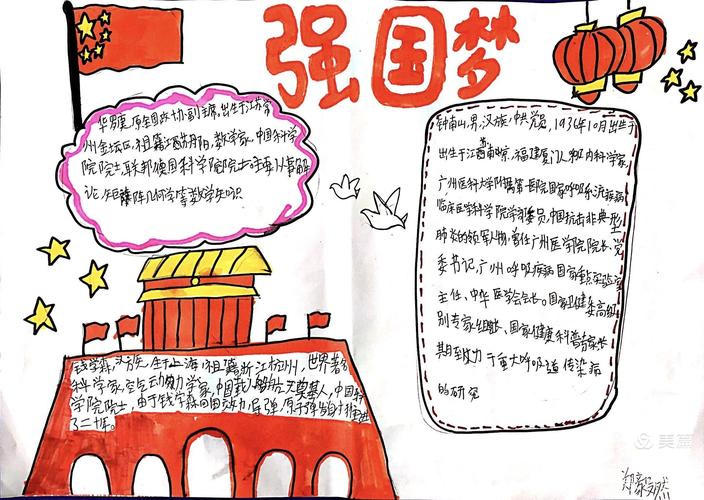 强国梦
华罗庚,原全国政协副主席。出生于江苏常
州金坛区,祖籍江苏丹阳,数学家,中国科学
院院士,联邦德国科学院院士 主要从事解
论,矩阵几何学等数学知识
钟南山,男,汉族,中共党员,1936年10月出生于
出生于江苏南京,福建厦门人 呼吸内科学家,
广州医科大学附属第一医院国家呼吸系统疾病
临床医学科学院学术委员,中国抗击非典型
肺炎的领军人物,曾任广州医学院院长、党
委书记,广州呼吸疾病国家重点实验室
主任、中华医学会会长。国家卫健委高级
别专家组组长、国家健康科普专家 长
期致力于重大呼吸道传染病
的研究
钱学森,汉族,生于上海,祖籍浙江杭州,世界著名
科学家,空气动力学家,中国载人航天奠基人,中国科
学院院士,由于钱学森回国效力,导弹,原子弹 向前推进
了二十年。
美篇